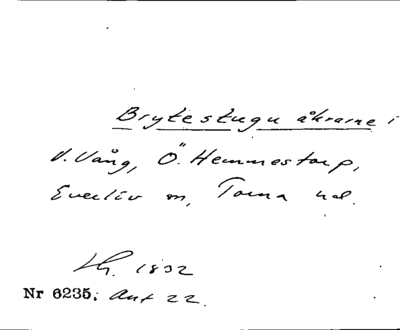 Brytestugu åkrarne i
V. Vång, Ö. Hemmestorp,
Everlöv sn, Torna hd.
Lh. 1832
Nr 6235. Ant 22.